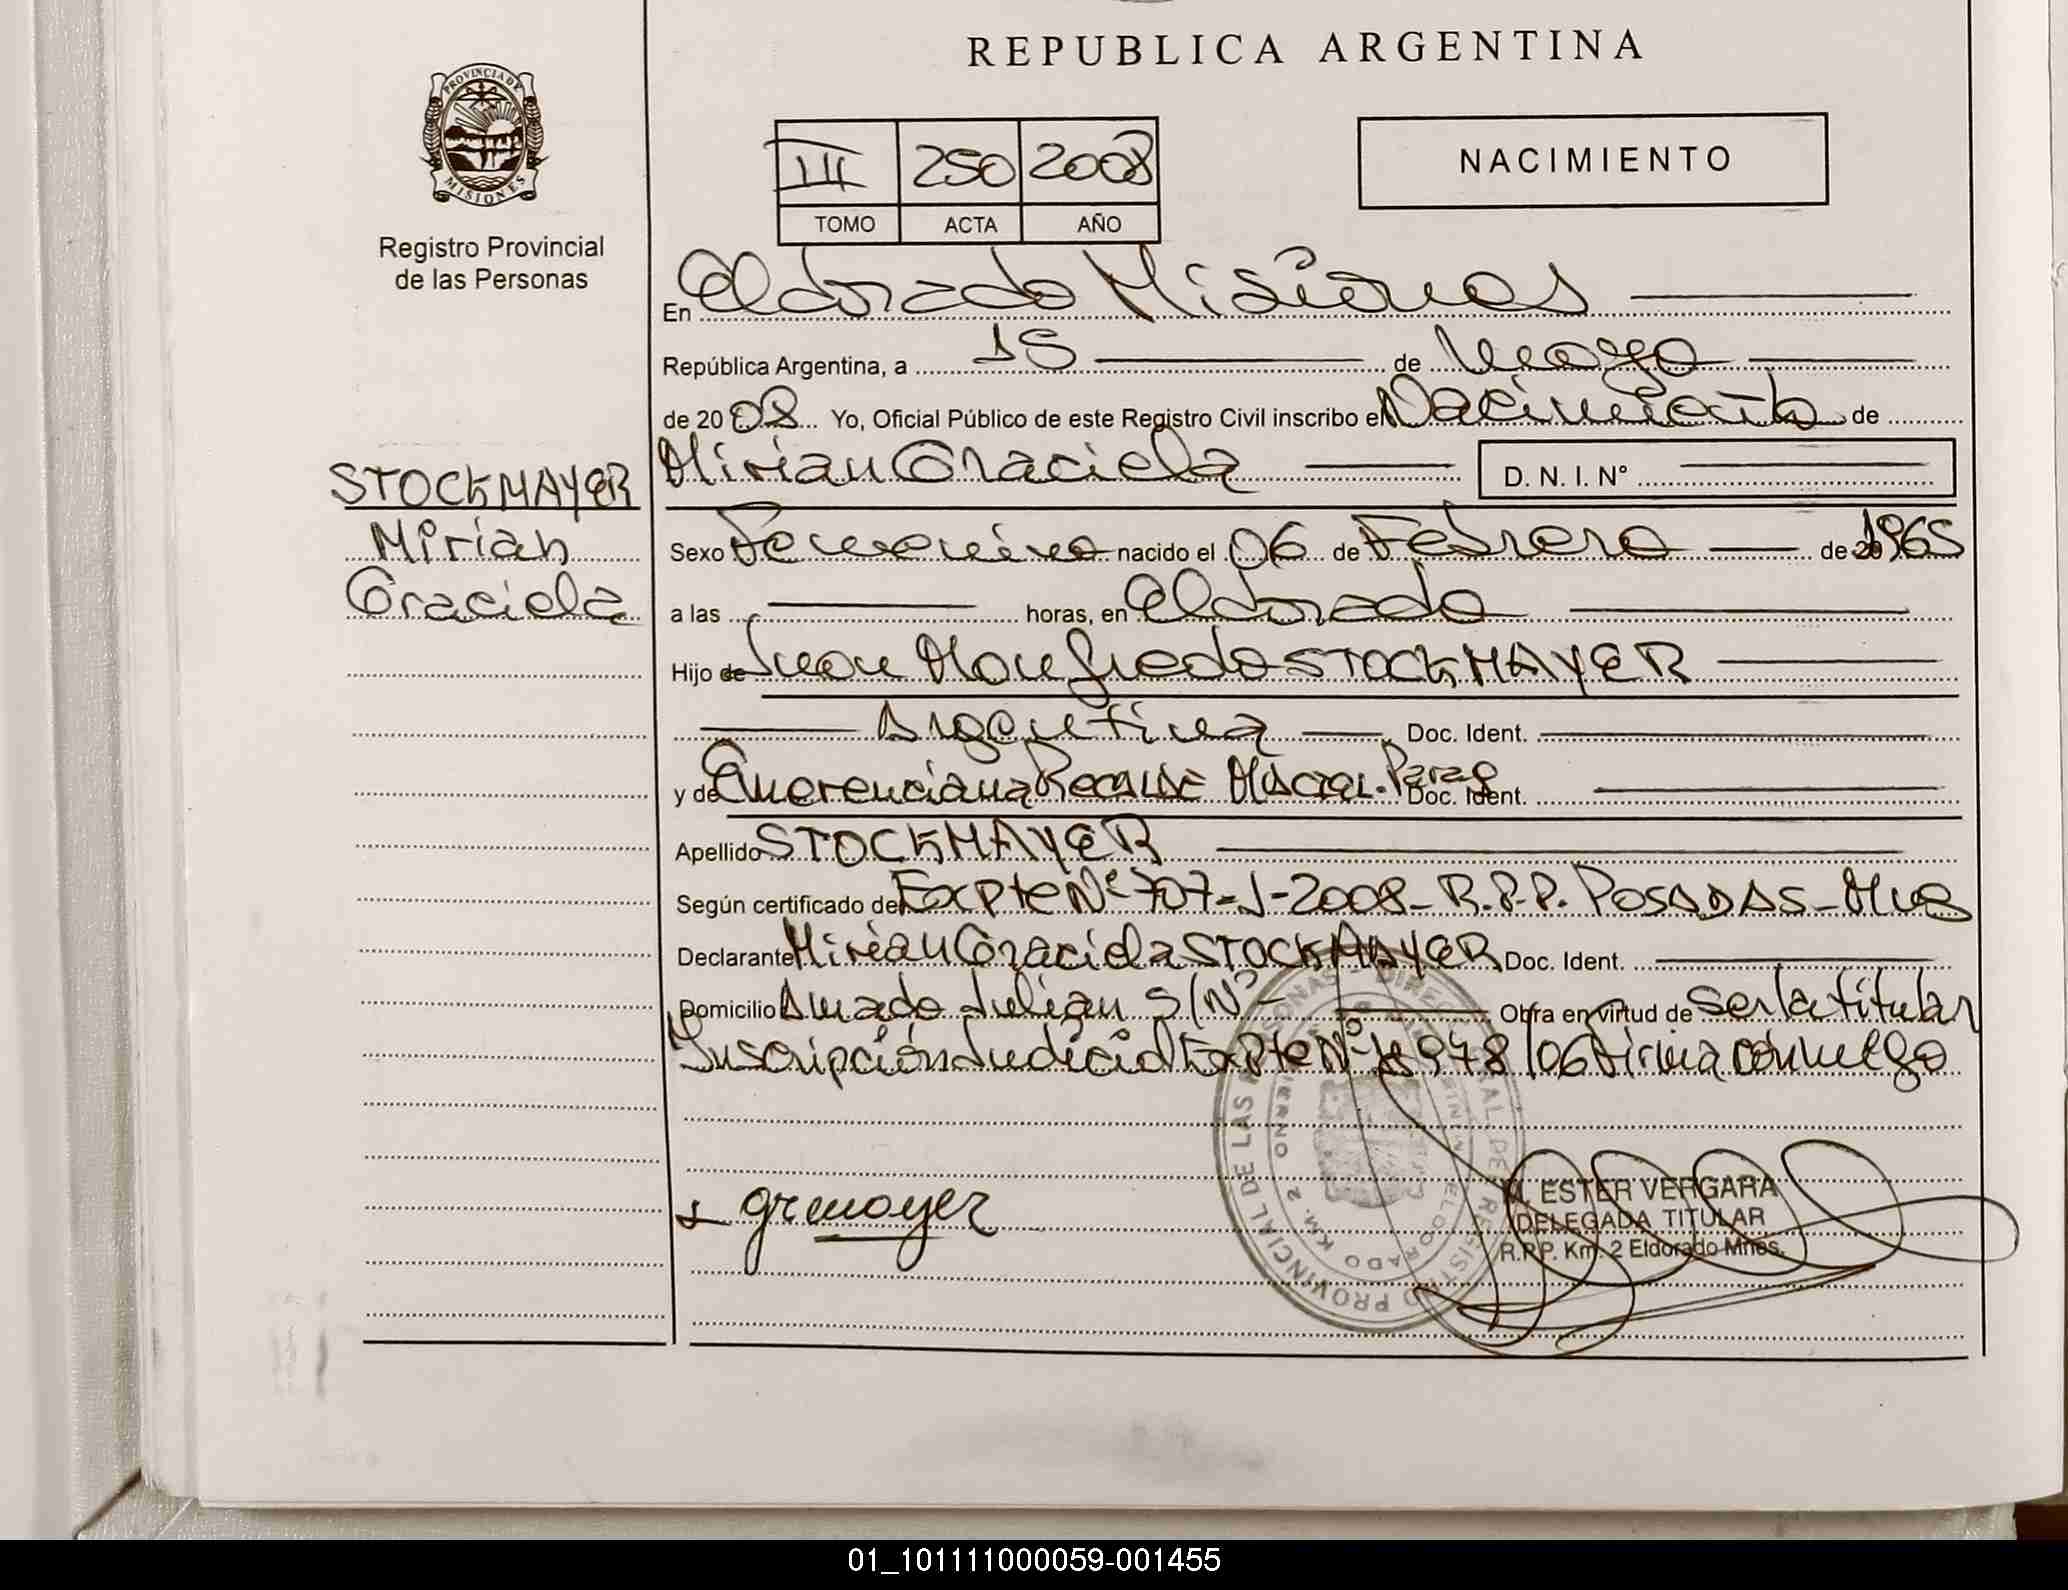 REPUBLICA ARGENTINA
PROVINCIA DE MISIONES
Registro Provincial
de las Personas
III 250 2008
TOMO ACTA AÑO
NACIMIENTO
En Eldorado Misiones
República Argentina, a 15 de Mayo
de 2008 Yo, Oficial Público de este Registro Civil inscribo el Nacimiento de
STOCKMAYER
Mirian
Graciela
Mirian Graciela D. N. I. N°
Sexo Femenino nacido el 06 de Febrero de 1965
a las horas, en Eldorado
Hijo de Juan Manfredo STOCKMAYER
Argentina Doc. Ident.
y de Emerenciana RECALDE MACIEL. Parag Doc. Ident.
Apellido STOCKMAYER
Según certificado de Expte Nº 707-J-2008-R.P.P. POSADAS-Mnes
Declarante Mirian Graciela STOCKMAYER Doc. Ident.
Domicilio Amado Julian S/Nº- Obra en virtud de ser la titular
Inscripción Judicial Expte Nº 978/06 Firma conmigo
M. ESTER VERGARA
DELEGADA TITULAR
R.P.P. Km. 2 Eldorado Mnes.
DIRECCION GENERAL DEL REGISTRO PROVINCIAL DE LAS PERSONAS
01_101111000059-001455